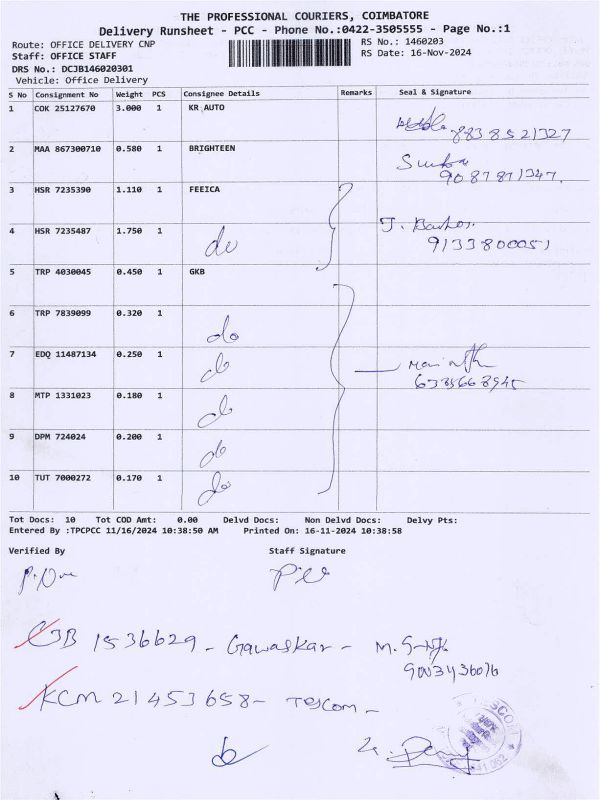 THE PROFESSIONAL COURIERS, COIMBATORE
Delivery Runsheet - PCC - Phone No.:0422-3505555 - Page No.:1
Route: OFFICE DELIVERY CNP
RS No.: 1460203
Staff: OFFICE STAFF
RS Date: 16-Nov-2024
DRS No.: DCJB146020301
Vehicle: Office Delivery
S No Consignment No Weight PCS Consignee Details Remarks Seal & Signature
1 COK 25127670 3.000 1 KR AUTO
8838521327
2 MAA 867300710 0.580 1 BRIGHTEEN
9087871347.
3 HSR 7235390 1.110 1 FEEICA
4 HSR 7235487 1.750 1 do
9133800051
5 TRP 4030045 0.450 1 GKB
6 TRP 7839099 0.320 1 do
7 EDQ 11487134 0.250 1 do
8 MTP 1331023 0.180 1 do
9 DPM 724024 0.200 1 do
10 TUT 7000272 0.170 1 do
Tot Docs: 10 Tot COD Amt: 0.00 Delvd Docs: Non Delvd Docs: Delvy Pts:
Entered By :TPCPCC 11/16/2024 10:38:50 AM Printed On: 16-11-2024 10:38:58
Verified By Staff Signature
CJB 1536629 - Gawaskar -
9003436076
KCM 21453658 - Tescom -